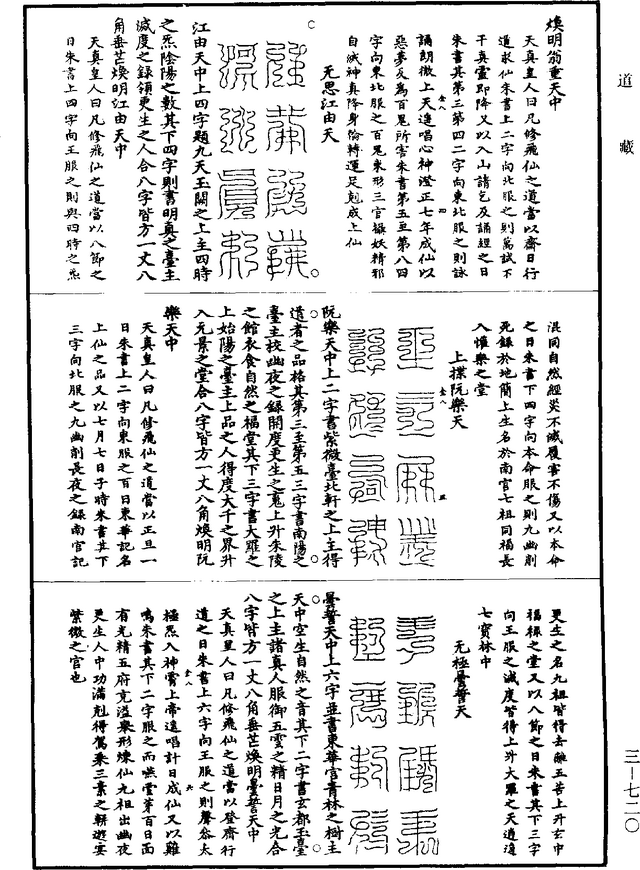 道藏
煥明翁重天中
天真皇人曰凡修飛仙之道當以齋日行
道求仙朱書上二字向北服之則萬試不
干真靈即降又以入山請乞及誦經之日
朱書其第三第四二字向東北服之則詠
誦朗徹上天逵唱心神澄正七年成仙以
惡夢及為百鬼所害朱書第五至第八四
字向東北服之百鬼束形三官攝妖精邪
自滅神真降身倫轉運足剋成上仙
无思江由天
江由天中上四字題九天玉闕之上主四時
之炁陰陽之數其下四字則書明真之臺主
滅度之錄領更生之人合八字皆方一丈八
角垂芒煥明江由天中
天真皇人曰凡修飛仙之道當以八節之
日朱書上四字向王服之則與四時之炁
混同自然經災不滅履害不傷又以本命
之日朱書下四字向本命服之則九幽削
死錄於地簡上生名於南宮七祖同福長
入惟樂之堂
上揲阮樂天
阮樂天中上二字書紫微臺北軒之上主得
道者之品格其第三至第五三字書南陽之
臺主校幽夜之錄開度更生之䰟上升朱陵
之館衣食自然之福堂其下三字書大羅之
上始陽之臺主上品之人得度大千之界升
入元景之堂合八字皆方一丈八角煥明阮
樂天中
天真皇人曰凡修飛仙之道當以正旦一
日朱書上二字向東服之百日東華記名
上仙之品又以七月七日子時朱書其下
三字向北服之九幽削長夜之錄南宮記
更生之名九祖皆得去離五苦上升玄中
福祿之堂又以八節之日朱書其下三字
向王服之滅度皆得上升大羅之天逍遙
七寶林中
无極曇誓天
曇誓天中上六字並書東華宮青林之樹主
天中空生自然之音其下二字書玄都玉臺
之上主諸真人服御五雲之精日月之光合
八字皆方一丈八角垂芒煥明曇誓天中
天真皇人曰凡修飛仙之道當以登齋行
道之日朱書上六字向王服之則聲參太
極炁入神霄上帝遠唱計日成仙又以雞
鳴朱書其下二字服之而嚥雲芽百日面
有光精五府充溢藥形煉仙九祖出幽夜
更生人中功滿剋得駕乘三素之軿遊宴
紫微之宮也
三—七二〇